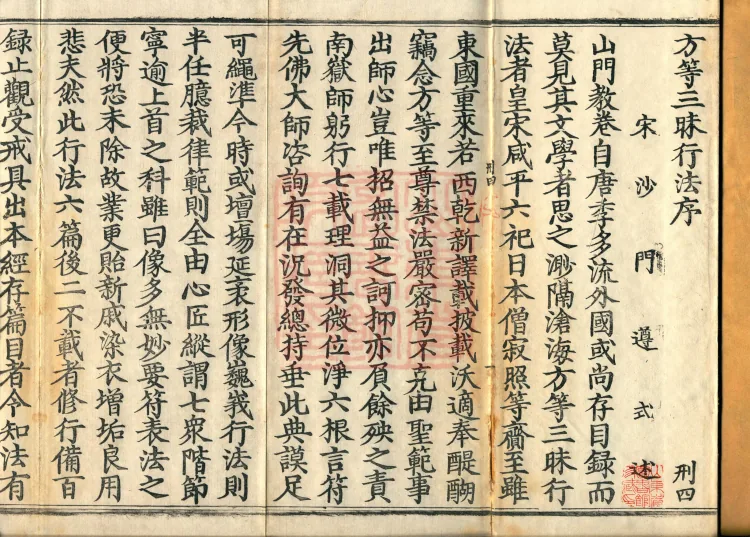 方等三昧行法序 刑四
宋沙門遵式述
山門教卷自唐季多流外國或尚存目録而
莫見其文學者思之渺隔滄海方等三昧行
法者皇宋咸平六祀日本僧寂照等齎至雖
刑四
東國重來若西乾新譯載披載沃適奉醍醐
竊念方等至尊禁法嚴宻苟不克由聖範事
出師心豈唯招無益之訶抑亦負餘殃之責
南嶽師躬行七載理洞其微位淨六根言符
先佛大師咨詢有在況發總持垂此典謨足
可繩準今時或壇場延袤形像巍峩行法則
半任臆裁律範則全由心匠縱謂七衆階節
寧逾上首之科雖曰像多無妙要符表法之
便將恐未除故業更貽新戚染衣增垢良用
悲夫然此行法六篇後二不載者修行備百
録止觀受戒具出本經存篇目者令知法有